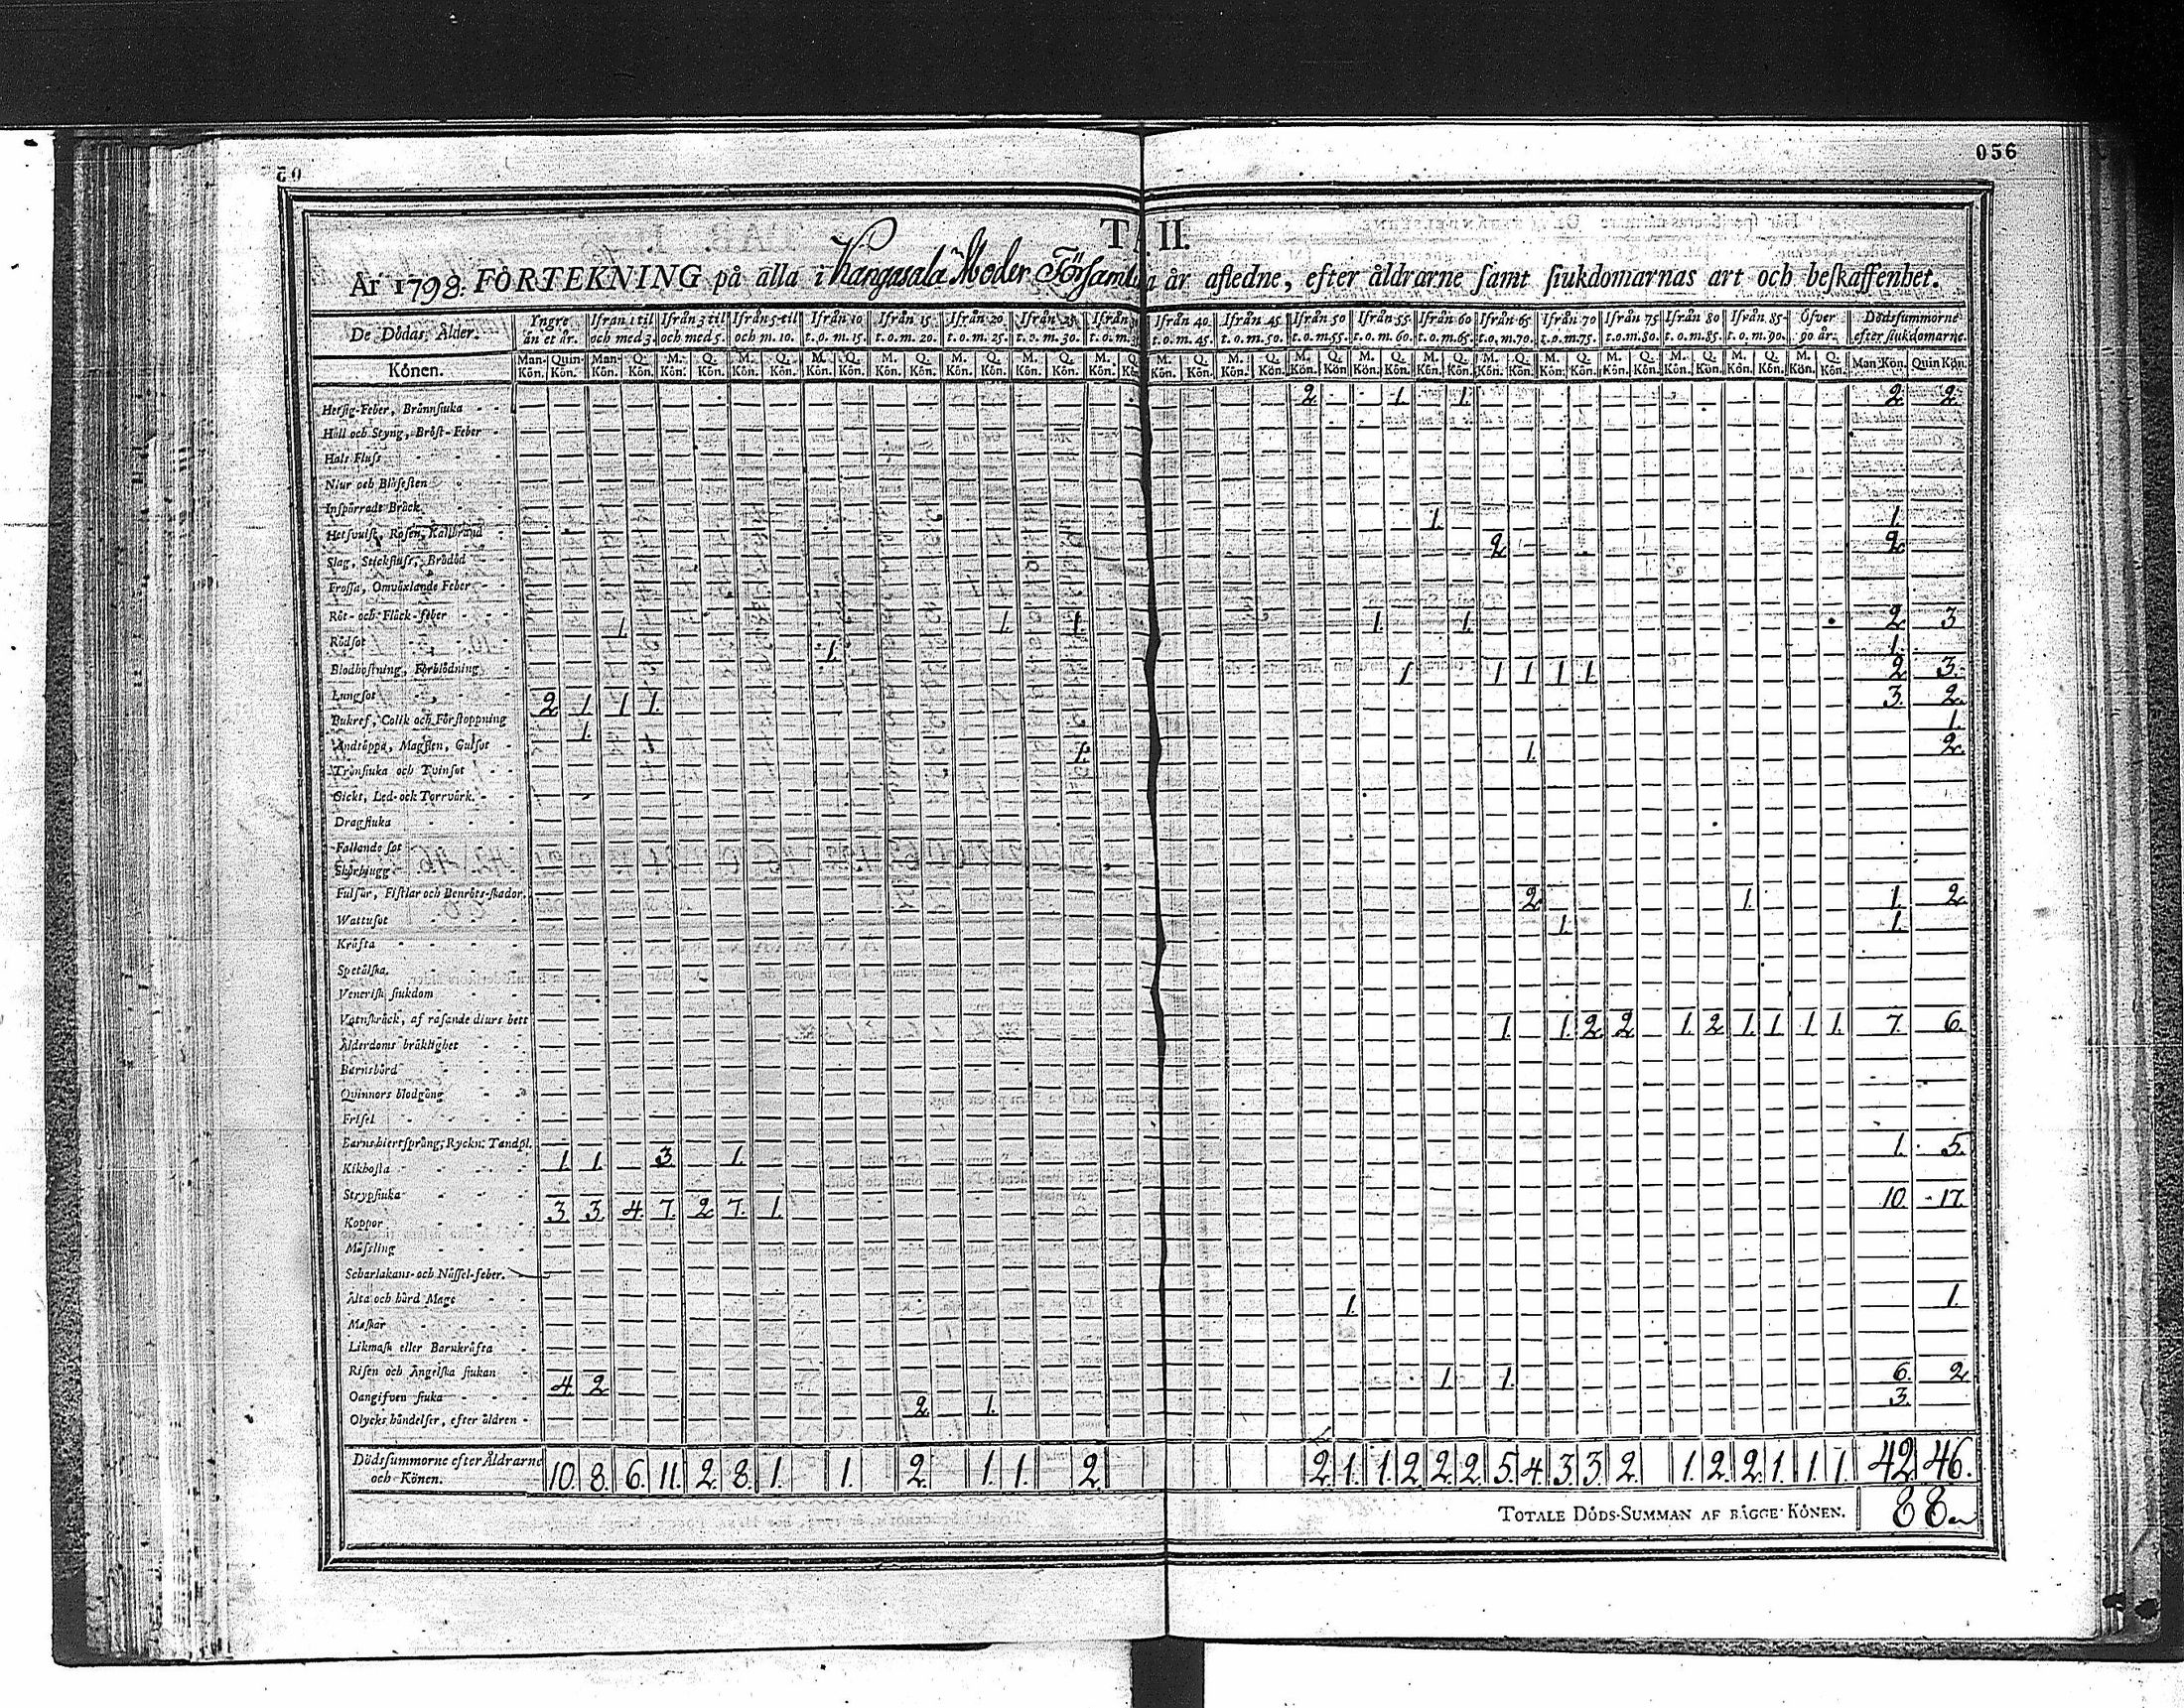 50
056
TA II.
År 1798. FÖRTEKNING på alla i Kangasala Moder Församl a år afledne, efter åldrarne samt siukdomarnas art och beskaffenhet.
De Dödas Ålder. Yngre än et år. Ifrån 1 til och med 3. Ifrån 3 til och med 5. Ifrån 5 til och m. 10. Ifrån 10 t. o. m. 15. Ifrån 15 t. o. m. 20. Ifrån 20 t. o. m. 25. Ifrån 25 t. o. m. 30. Ifrån t. o. m. Ifrån 40 t. o. m. 45. Ifrån 45 t. o. m. 50. Ifrån 50 t. o. m. 55. Ifrån 55 t. o. m. 60. Ifrån 60 t. o. m. 65. Ifrån 65 t. o. m. 70. Ifrån 70 t. o. m. 75. Ifrån 75 t. o. m. 80. Ifrån 80 t. o. m. 85. Ifrån 85 t. o. m. 90. Öfver 90 år. Dödssummorne efter siukdomarne.
Könen. Man-Kön. Quin-Kön. Man-Kön. Q. Kön. M. Kön. Q. Kön. M. Kön. Q. Kön. M. Kön. Q. Kön. M. Kön. Q. Kön. M. Kön. Q. Kön. M. Kön. Q. Kön. M. Kön. Q. Kön. M. Kön. Q. Kön. M. Kön. Q. Kön. M. Kön. Q. Kön. M. Kön. Q. Kön. M. Kön. Q. Kön. M. Kön. Q. Kön. M. Kön. Q. Kön. M. Kön. Q. Kön. M. Kön. Q. Kön. M. Kön. Q. Kön. M. Kön. Q. Kön. Man Kön. Quin Kön.
Hetsig-Feber, Brännsiuka 2 1. 1. 2. 2.
Håll och Styng, Bröst-Feber
Hals Fluss
Niur och Blåsesten
Inspärradt Bråck
Hetsvulst, Rosen, Kallbrand 1. 1.
Slag, Stickfluss, Brådöd 2 2.
Frossa, Omväxlande Feber
Röt- och Fläck-feber
Rödsot 1. 1. 1. 1. 1. 2. 3
Blodhostning, Förblödning 1. 1.
Lungsot 1 1 1 1 1 2 3.
Bukref, Colik och Förstoppning 2 1 1 1. 3. 2.
Andtäppa, Magsten, Gulsot 1. 1.
Trånsiuka och Tvinsot 1. 1. 2.
Gickt, Led- ock Torrvärk.
Dragsiuka
Fallande sot
Skörbiugg
Fulsår, Fistlar och Benröts-skador. 2 1. 1. 2
Wattusot 1. 1.
Kräfta
Spetälska
Venerisk siukdom
Vatnskräck, af rasande diurs bett
Ålderdoms bräklighet 1. 1. 2 2 1. 2 1. 1. 1. 1. 7. 6.
Barnsbörd
Qvinnors blodgång
Frisel
Barnshiertsprång, Ryckn. Tandpl.
Kikhosta 1. 1. 3. 1. 1. 5.
Strypsiuka
Koppor 3. 3. 4. 7. 2. 7. 1. 10. 17.
Mässling
Scharlakans- och Nässel-feber.
Älta och hård Mage
Maskar 1. 1.
Likmask eller Barnkräfta
Risen och Ängelska siukan
Oangifven siuka 4 2 1. 1. 6. 2
Olycks händelser, efter åldren 2. 1. 3.
Dödssummorne efter Åldrarne och Könen. 10. 8. 6. 11. 2. 8. 1. 1. 2. 1. 1. 2. 2. 1. 1. 2. 2. 2. 5. 4. 3. 3. 2. 1. 2. 2. 1. 1. 1. 42 46.
TOTALE DÖDS-SUMMAN AF BÄGGE KÖNEN. 88